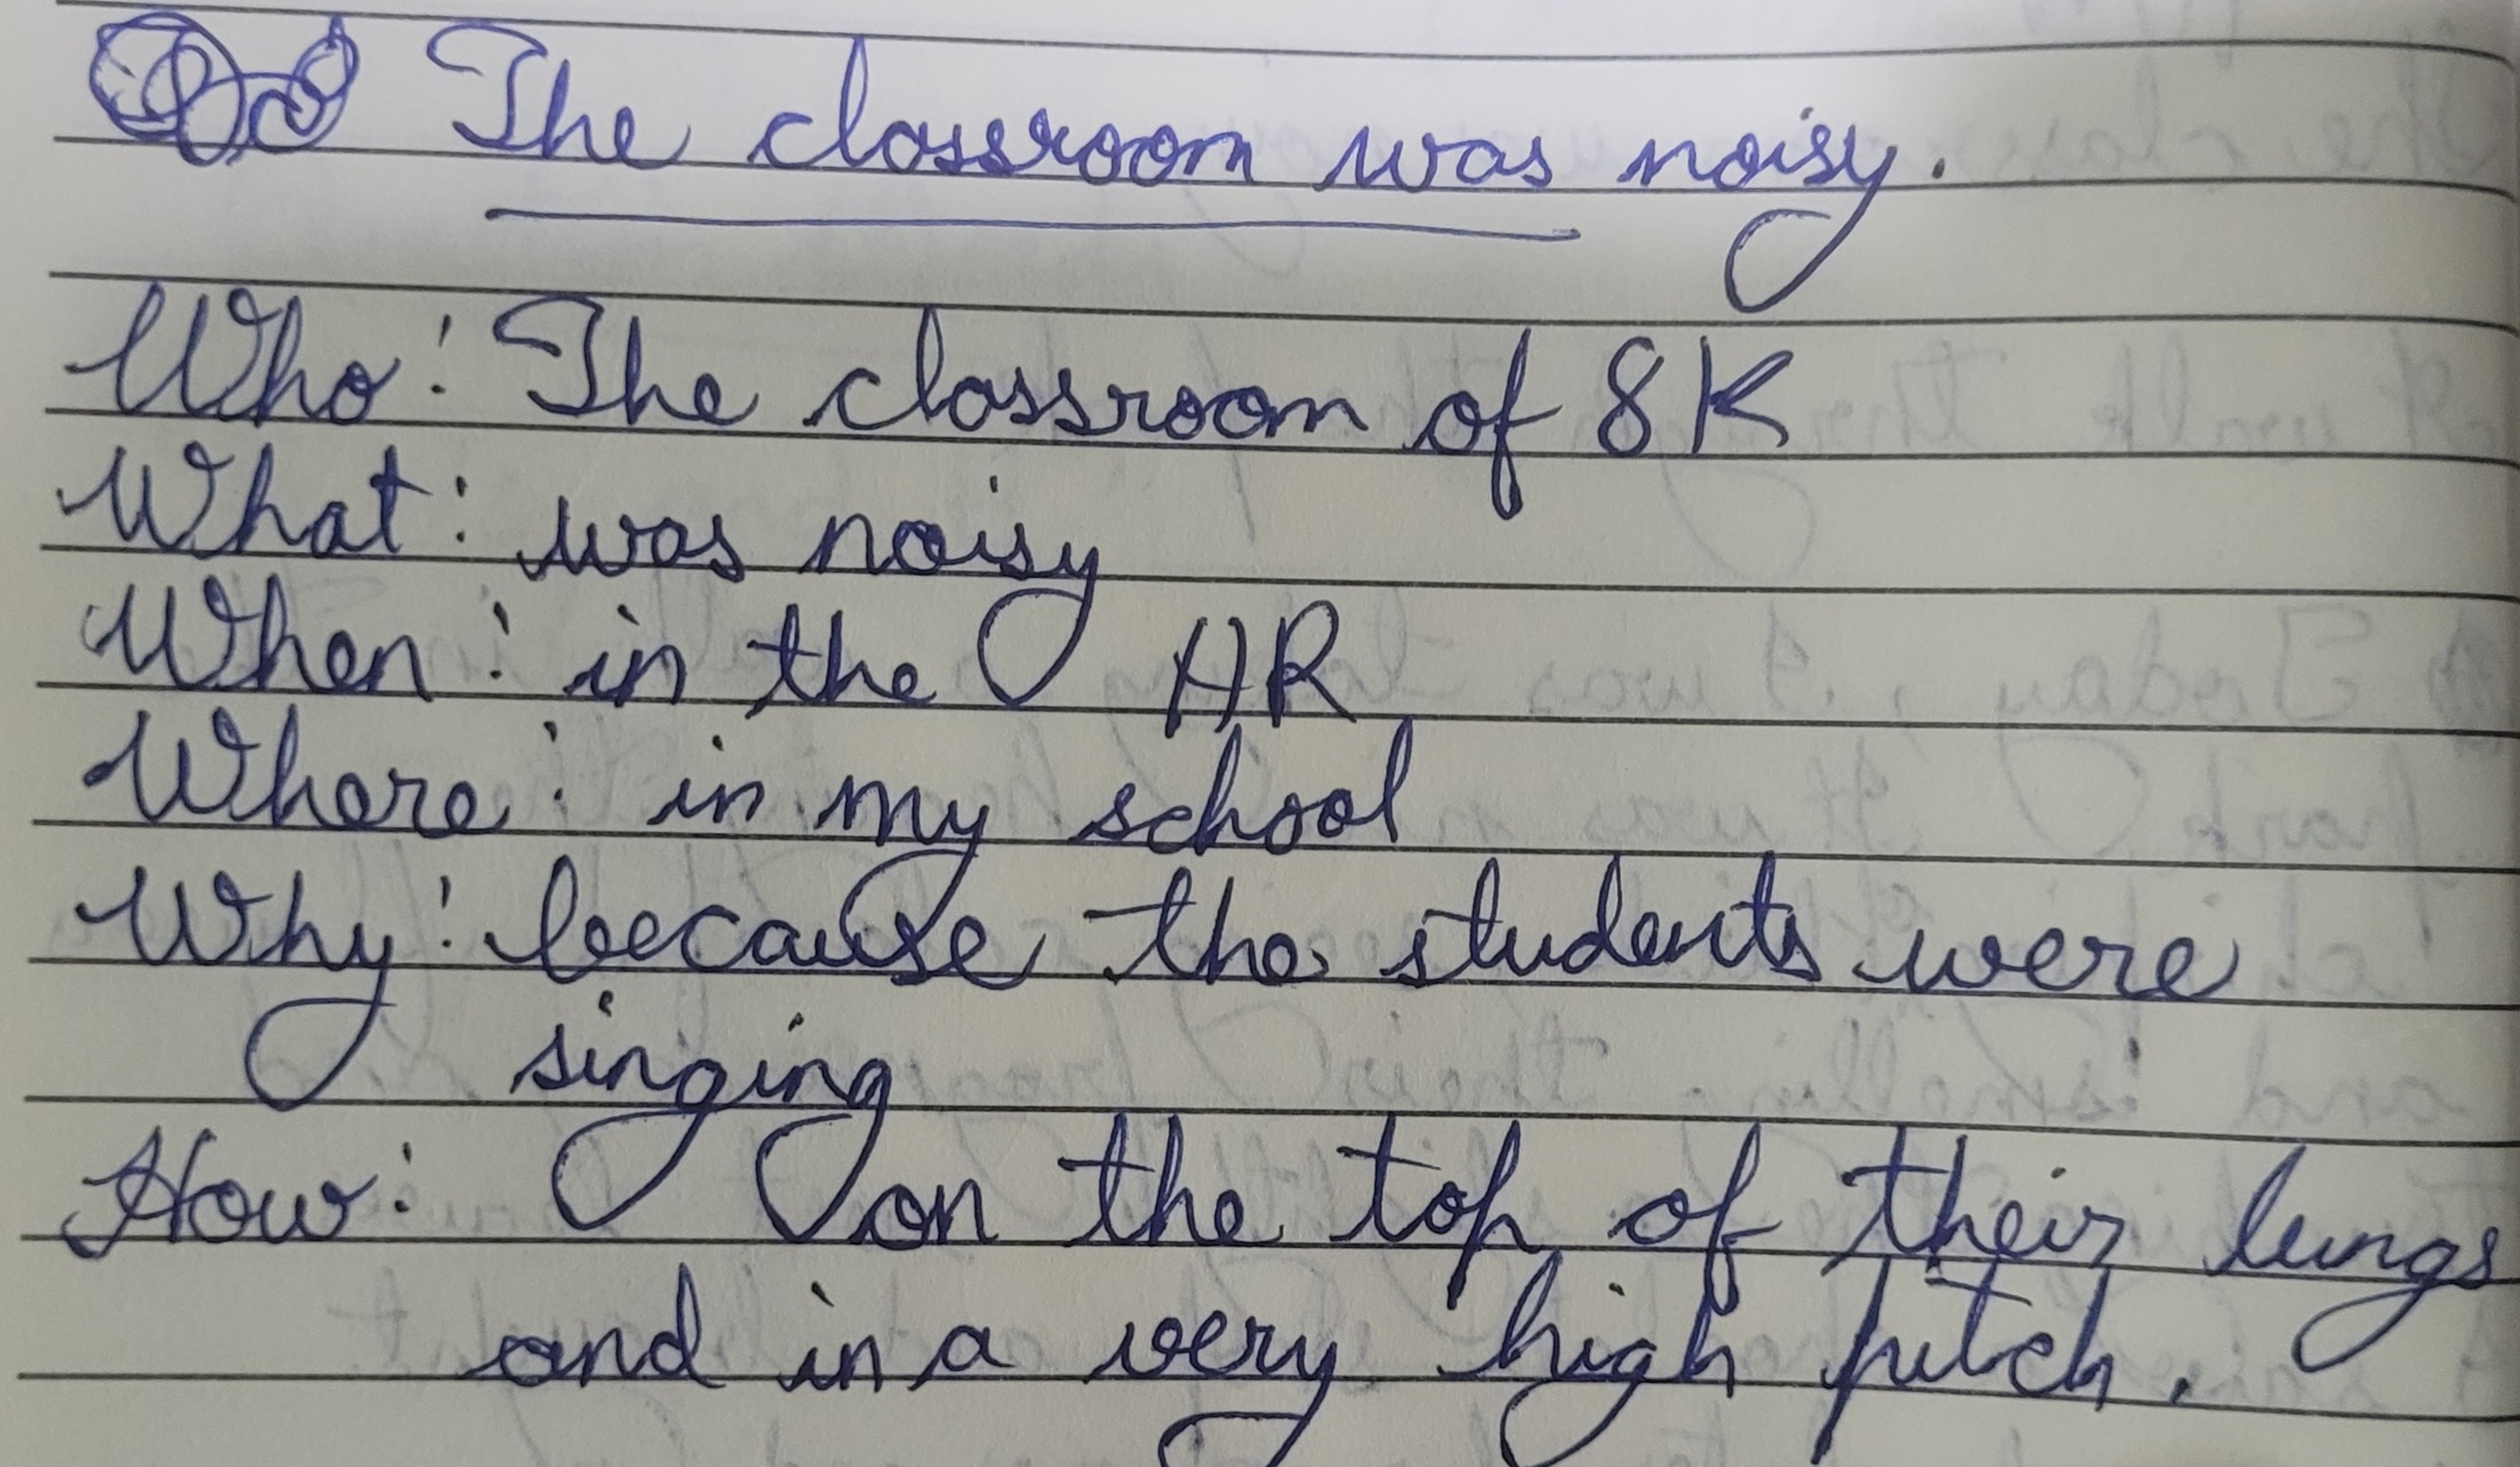 The classroom was noisy.
Who: The classroom of 8K
What: was noisy
When: in the HR
Where: in my school
Why: because the students were
singing
How: on the top of their lungs
and in a very high pitch.